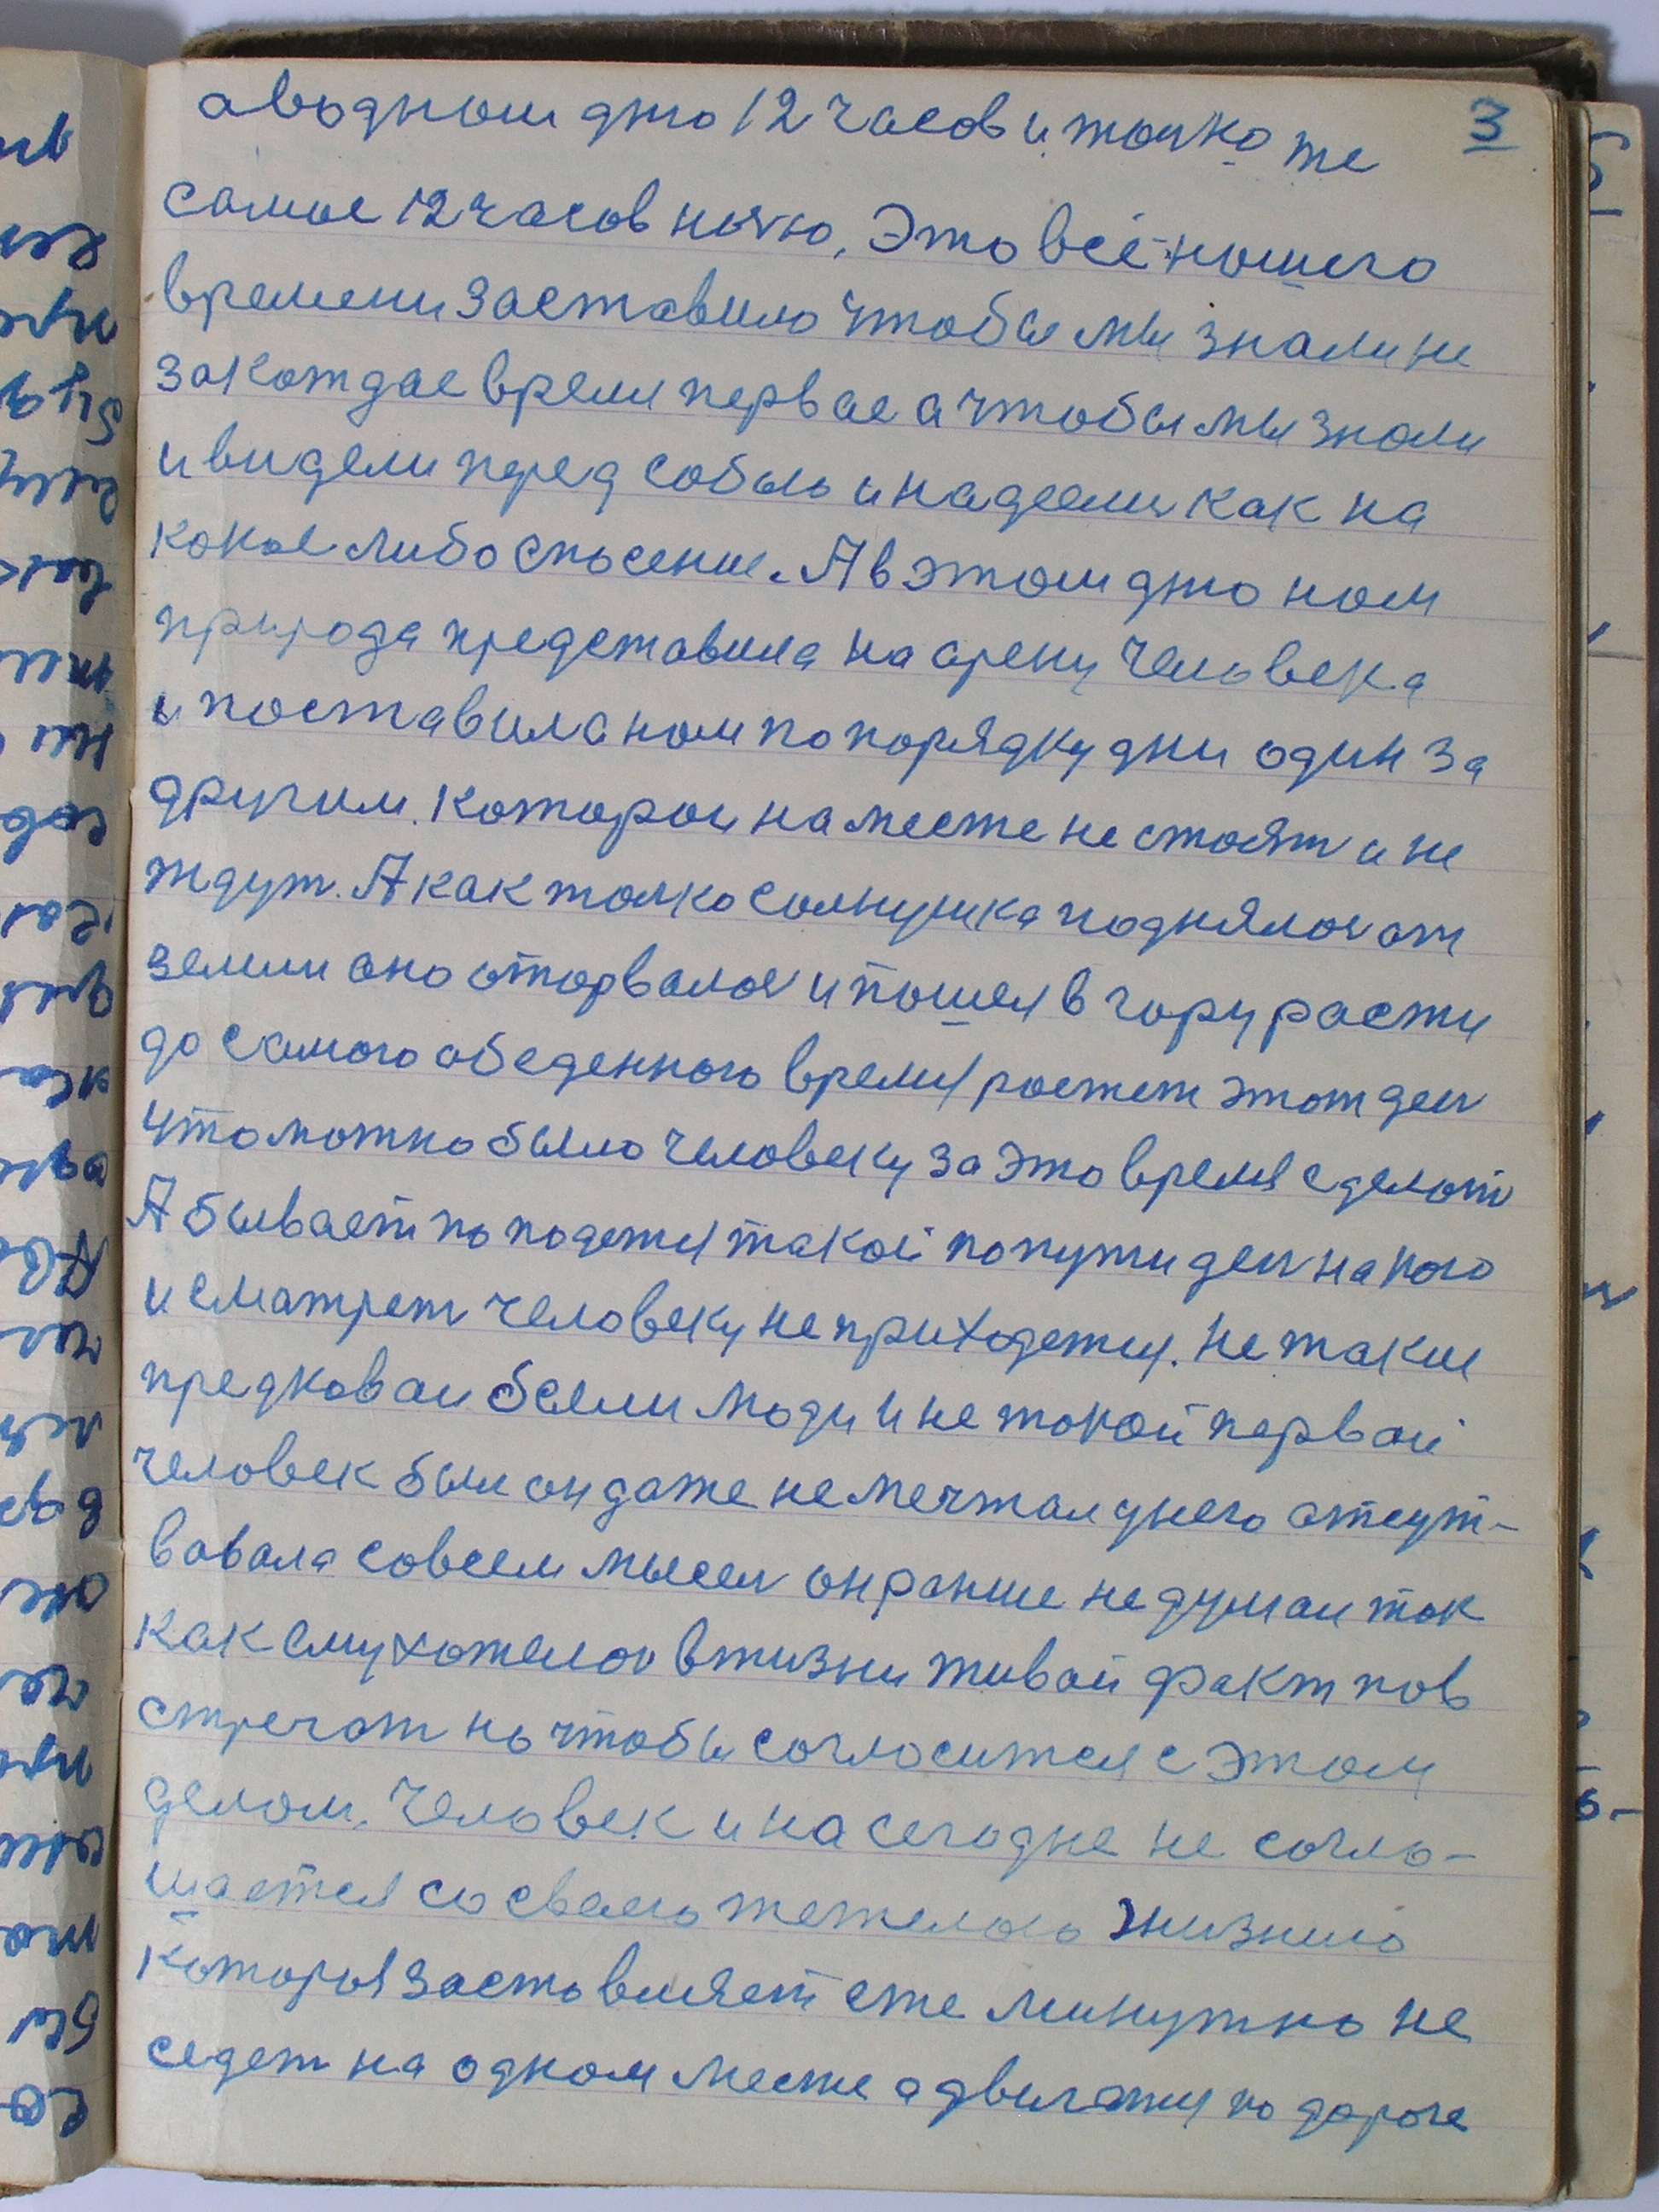 3
а водном дню 12 часов и толко те
самое 12 часов ночю, Это всё нашего
времени заставило чтобы мы знали не
за кождае время первае а чтобы мы знали
и видели перед собою и надеелис как на
какое либо спасение. А в этом дню нам
природа предcтавила на арену человека
и поставила нам по порядку дни один за
другим. которои на месте не стоят и не
ждут. А как толко солнушка поднялос от
земли оно оторвалос и пошел в гору расти
до самого обеденного время ростет этот ден
что можно было человеку за это время сделат
А бывает по подется такой по пути ден на кого
и сматрет человеку не приходется. Не такие
предковаи были люди и не токой первои
человек был он даже не мечтал у него отсут-
вовала совсем мысел он ранше не думал так
как ему хотелос в жизни живой факт пов
стречат но чтобы согласится с этом
делом, Человек и на сегодне не согло-
шается со своею тежелою жизнию
которая заставляет еже минутно не
седет на одном месте а двигатся по дороге